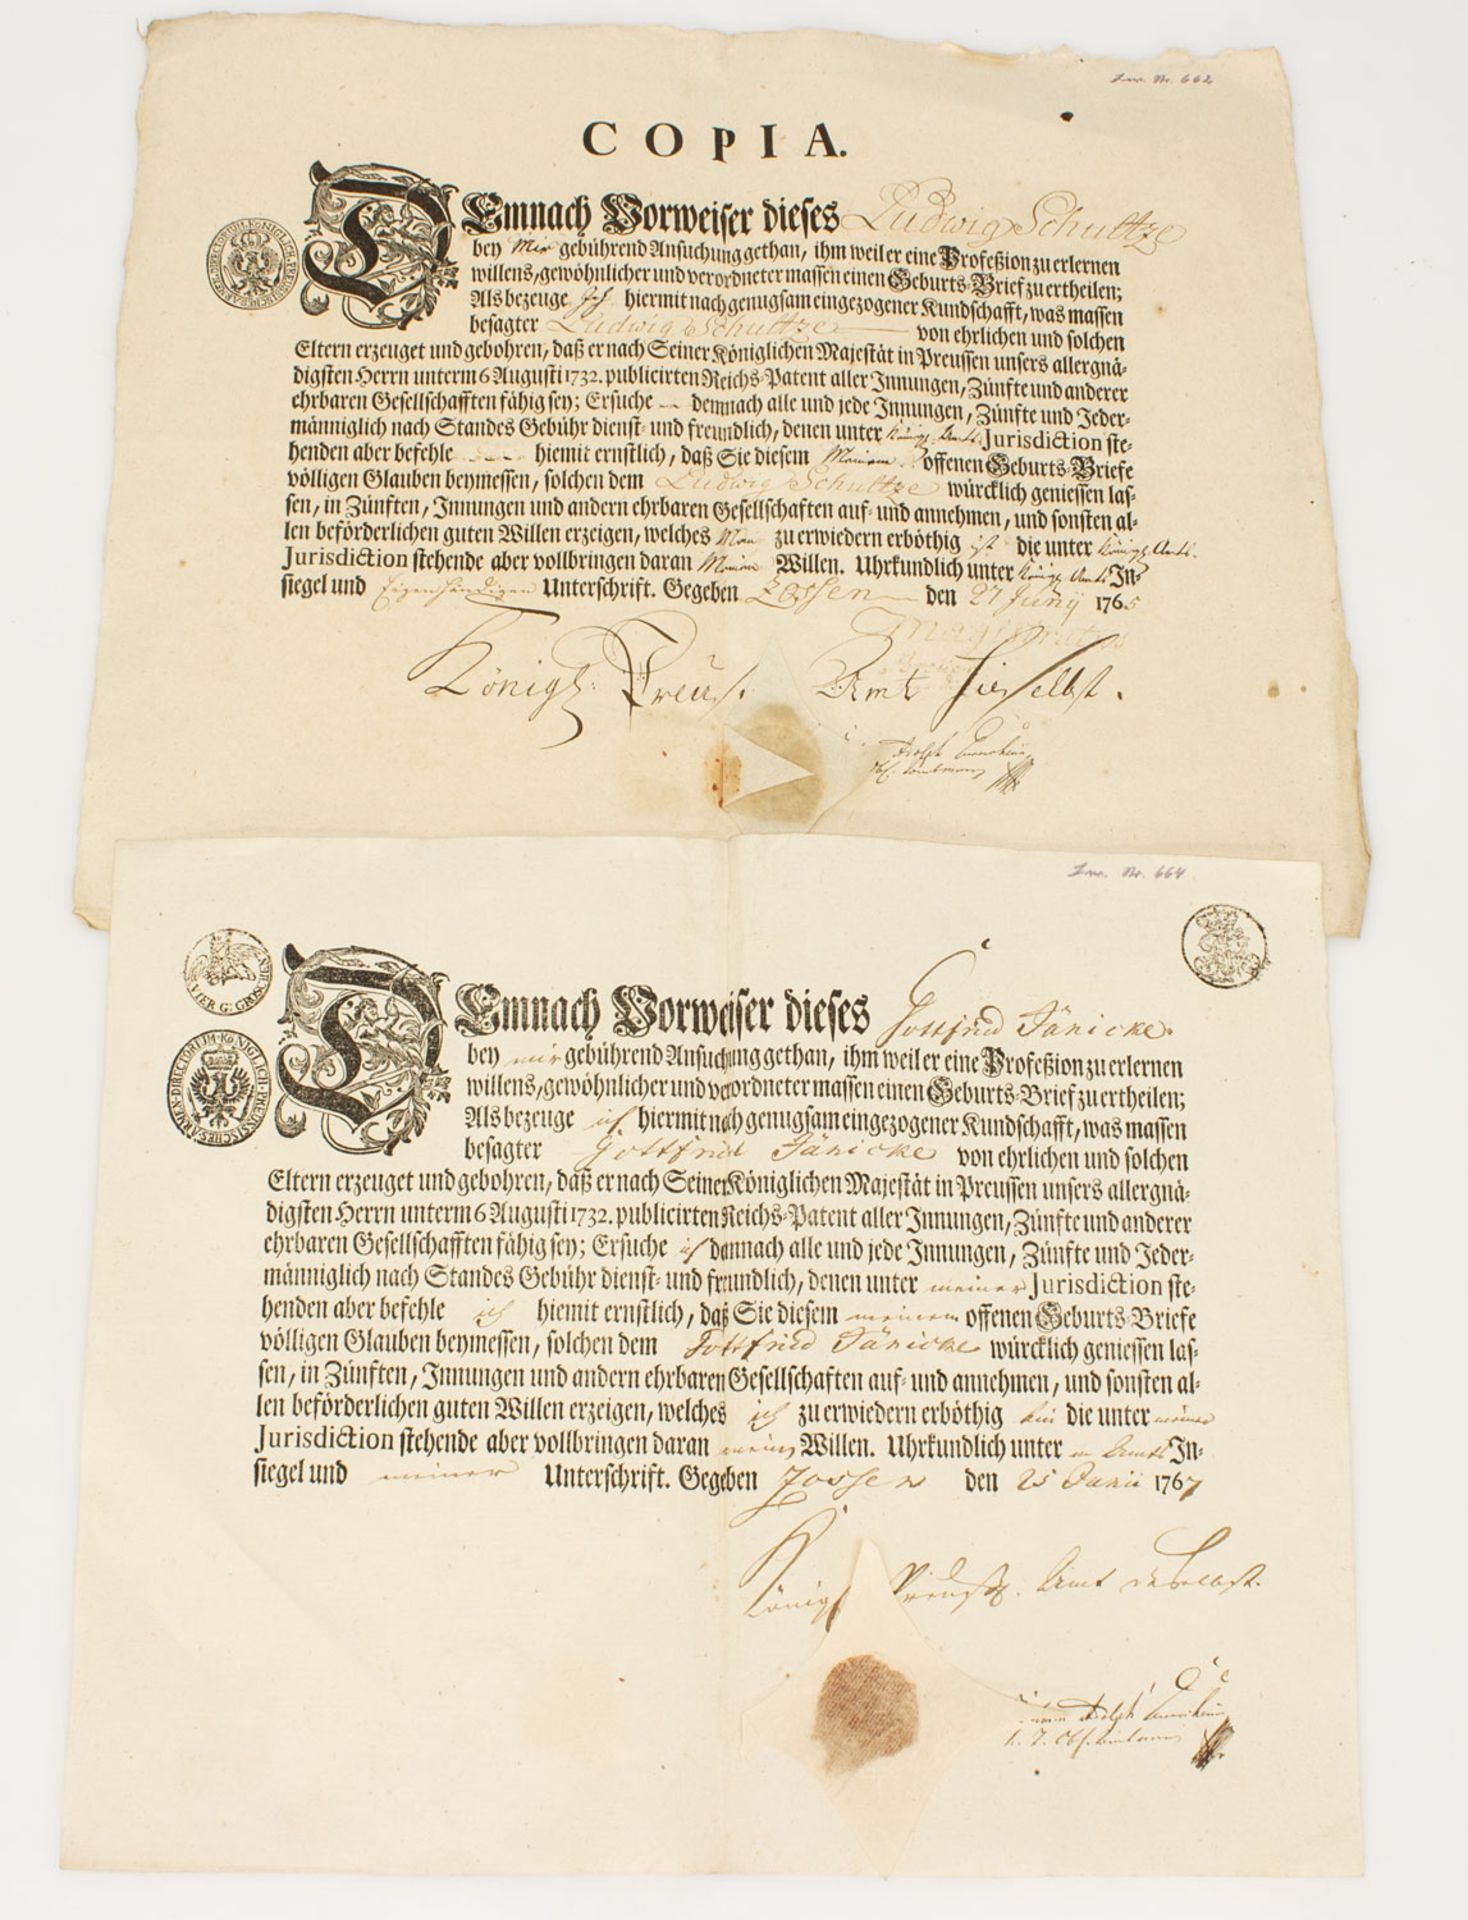 Inv. Nr. 662
COPIA.
DEmnach Vorweiser dieses Ludwig Schultze
bey Mir gebührend Ansuchung gethan, ihm weil er eine Profeßion zu erlernen
willens, gewöhnlicher und verordneter massen einen Geburts-Brief zu ertheilen;
Als bezeuge Ich hiermit nach genugsam eingezogener Kundschafft, was massen
besagter Ludwig Schultze von ehrlichen und solchen
Eltern erzeuget und gebohren, daß er nach Seiner Königlichen Majestät in Preussen unsers allergnä-
digsten Herrn unterm 6 Augusti 1732. publicirten Reichs-Patent aller Innungen, Zünfte und anderer
ehrbaren Gesellschafften fähig sey; Ersuche demnach alle und jede Innungen, Zünfte und Jeder-
männiglich nach Standes Gebühr dienst- und freundlich, denen unter Königl. Amts Jurisdiction ste-
henden aber befehle hiemit ernstlich, daß Sie diesem Meinem offenen Geburts-Briefe
völligen Glauben beymessen, solchen dem Ludwig Schultze würcklich geniessen las-
sen, in Zünften, Innungen und andern ehrbaren Gesellschaften auf- und annehmen, und sonsten al-
len beförderlichen guten Willen erzeigen, welches Man zu erwiedern erböthig ist die unter Königl. Amts.
Jurisdiction stehende aber vollbringen daran Meinen Willen. Uhrkundlich unter Königl. Amts In-
siegel und Eigenhändigen Unterschrift. Gegeben Zossen den 27 Juny 1765
Königl: Preuß. Amt hieselbst.
Adolph
VIER G: GROSCHEN
DIRECTORIUM KÖNIGLICH-PREUSSISCHES ARMEN
Inv. Nr. 664
DEmnach Vorweiser dieses Gottfried Jänicke
bey mir gebührend Ansuchung gethan, ihm weil er eine Profeßion zu erlernen
willens, gewöhnlicher und verordneter massen einen Geburts-Brief zu ertheilen;
Als bezeuge ich hiermit nach genugsam eingezogener Kundschafft, was massen
besagter Gottfried Jänicke von ehrlichen und solchen
Eltern erzeuget und gebohren, daß er nach Seiner Königlichen Majestät in Preussen unsers allergnä-
digsten Herrn unterm 6 Augusti 1732. publicirten Reichs-Patent aller Innungen, Zünfte und anderer
ehrbaren Gesellschafften fähig sey; Ersuche ich dannach alle und jede Innungen, Zünfte und Jeder-
männiglich nach Standes Gebühr dienst- und freundlich, denen unter meiner Jurisdiction ste-
henden aber befehle ich hiemit ernstlich, daß Sie diesem meinem offenen Geburts-Briefe
völligen Glauben beymessen, solchen dem Gottfried Jänicke würcklich geniessen las-
sen, in Zünften, Innungen und andern ehrbaren Gesellschaften auf- und annehmen, und sonsten al-
len beförderlichen guten Willen erzeigen, welches ich zu erwiedern erböthig bin die unter meiner
Jurisdiction stehende aber vollbringen daran meinen Willen. Uhrkundlich unter Amts In-
siegel und meiner Unterschrift. Gegeben Zossen den 25 Junii 1767
Königl Preuß. Amt daselbst.
Adolph